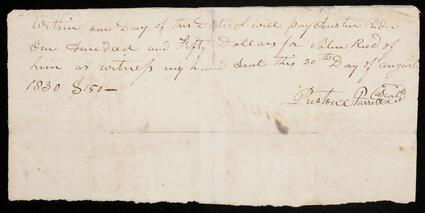 Within one Day of this Date I will pay Austin
One Hundred and Fifty Dollars for Value Recd of
him as witness my hand Seal this 20th Day of august
1830 $150—
Preston Seal